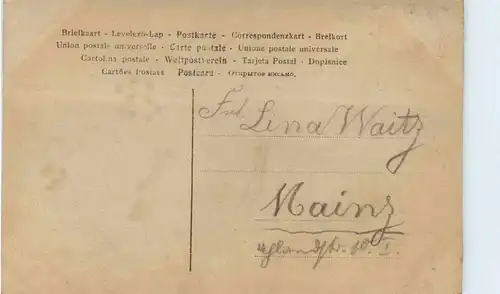 Briefkaart - Levelező-Lap - Postkarte - Correspondenzkart - Brefkort
Union postale universelle - Carte postale - Unione postale universale
Cartolina postale - Weltpostverein - Tarjeta Postal - Dopisnice
Cartões Postaes Postcard - Открытое письмо.
Frl. Lina Waitz
Mainz